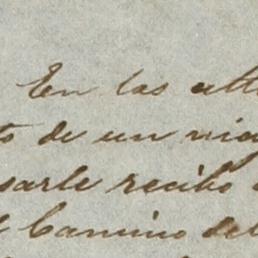 En las
to de un
sarle recibo
Camino del